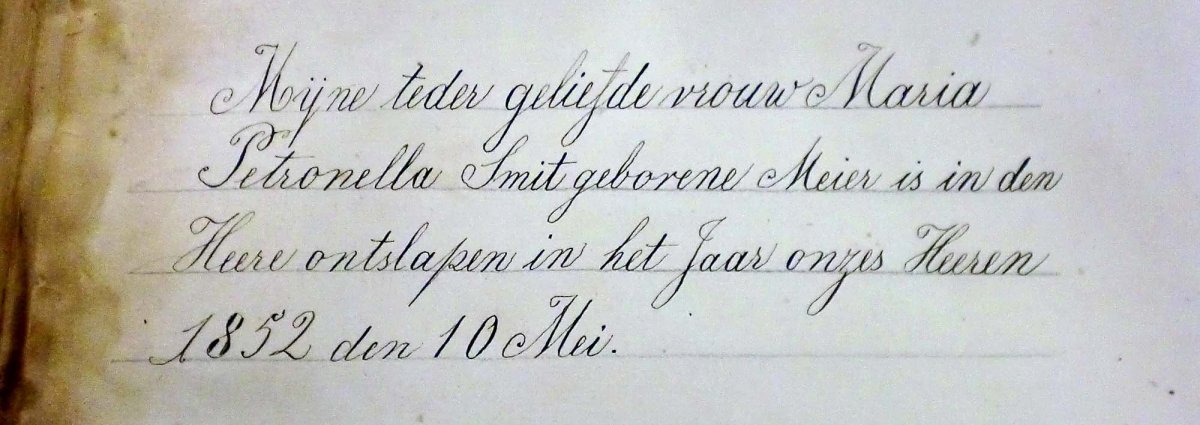 Mijne teder geliefde vrouw Maria
Petronella Smit geborene Meier is in den
Heere ontslapen in het Jaar onzes Heeren
1852 den 10 Mei.